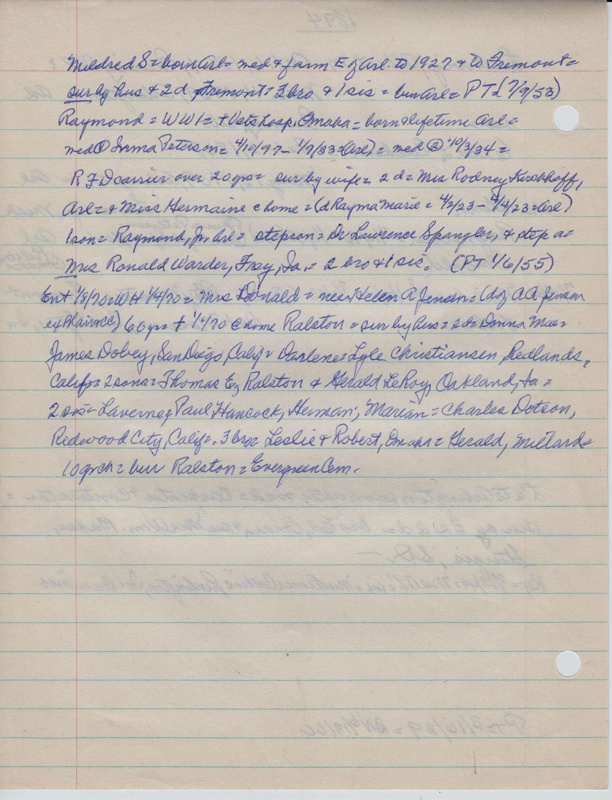 Mildred S = born Arl = med & farm E of Arl. to 1927 & to Fremont =
sur by hus & 2d Fremont = 3 bro & 1 sis = bur Arl = PT (7/9/53)
Raymond = WW1 = + Vets Hosp, Omaha = born & lifetime Arl =
med ① Irma Peterson = 4/19/22 - 1/7/33 = (Arl) = med ② 10/3/34 =
RFD carrier over 20 yrs = sur by wife = 2 d = Mrs Rodney Kirchhoff,
Arl = & Miss Hermaine @ home = (d Rayma Marie = 4/2/23 - 4/4/23 = Arl)
1 son = Raymond, Jr. Arl = stepson = Dr Lawrence Spangler, & step d =
Mrs Ronald Warder, Troy, Ia, = 2 bro & 1 sis. (PT 1/6/55)
Ent 1/5/70 = WH 1/4/70 = Mrs Donald = nee Helen A Jensen = (d of AA Jensen
ey Blair) 60 yrs + 1/1/70 @ home Ralston = sur by hus = 2 d = Donna Mae =
James Dobey, San Diego, Calif = Darlene = Lyle Christiansen, Redlands,
Calif = 2 sons = Thomas E, Ralston & Gerald LeRoy, Oakland, Ia =
2 sis = Laverne, Paul Hancock, Herman, Marian = Charles Dotson,
Redwood City, Calif = 3 bro = Leslie & Robert, Omaha = Gerald, Millard =
10 grch = bur Ralston = Evergreen Cem.